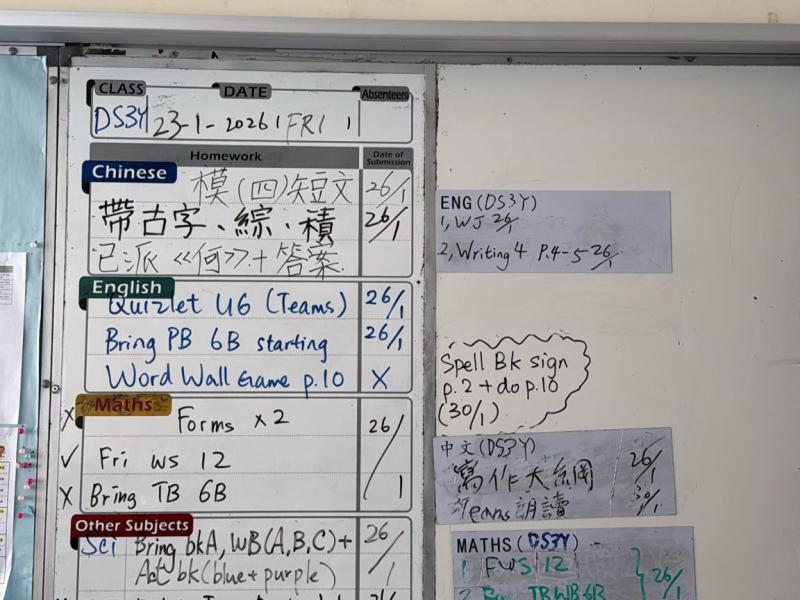 CLASS DATE Absentees
DS3Y 23-1-2026 FRI 1
Homework Date of Submission
Chinese
模(四)短文 26/1
帶古字、綜、積 26/1
已派《何》+答案
English
Quizlet U6 (Teams) 26/1
Bring PB 6B starting 26/1
Word Wall Game p.10 X
Maths
X Forms x2 26/1
✓ Fri WS 12
X Bring TB 6B
Other Subjects
Sci Bring bkA, WB(A,B,C)+ 26/1
Act bk(blue+purple)
ENG(DS3Y)
1, WJ 26/1
2, Writing 4 P.4-5 26/1
Spell Bk sign
p.2 + do p.10
(30/1)
中文(DS3Y)
寫作大綱 26/1
Teams 朗讀 30/1
MATHS(DS3Y)
1 FWS 12
2 TB WB 6B 26/1